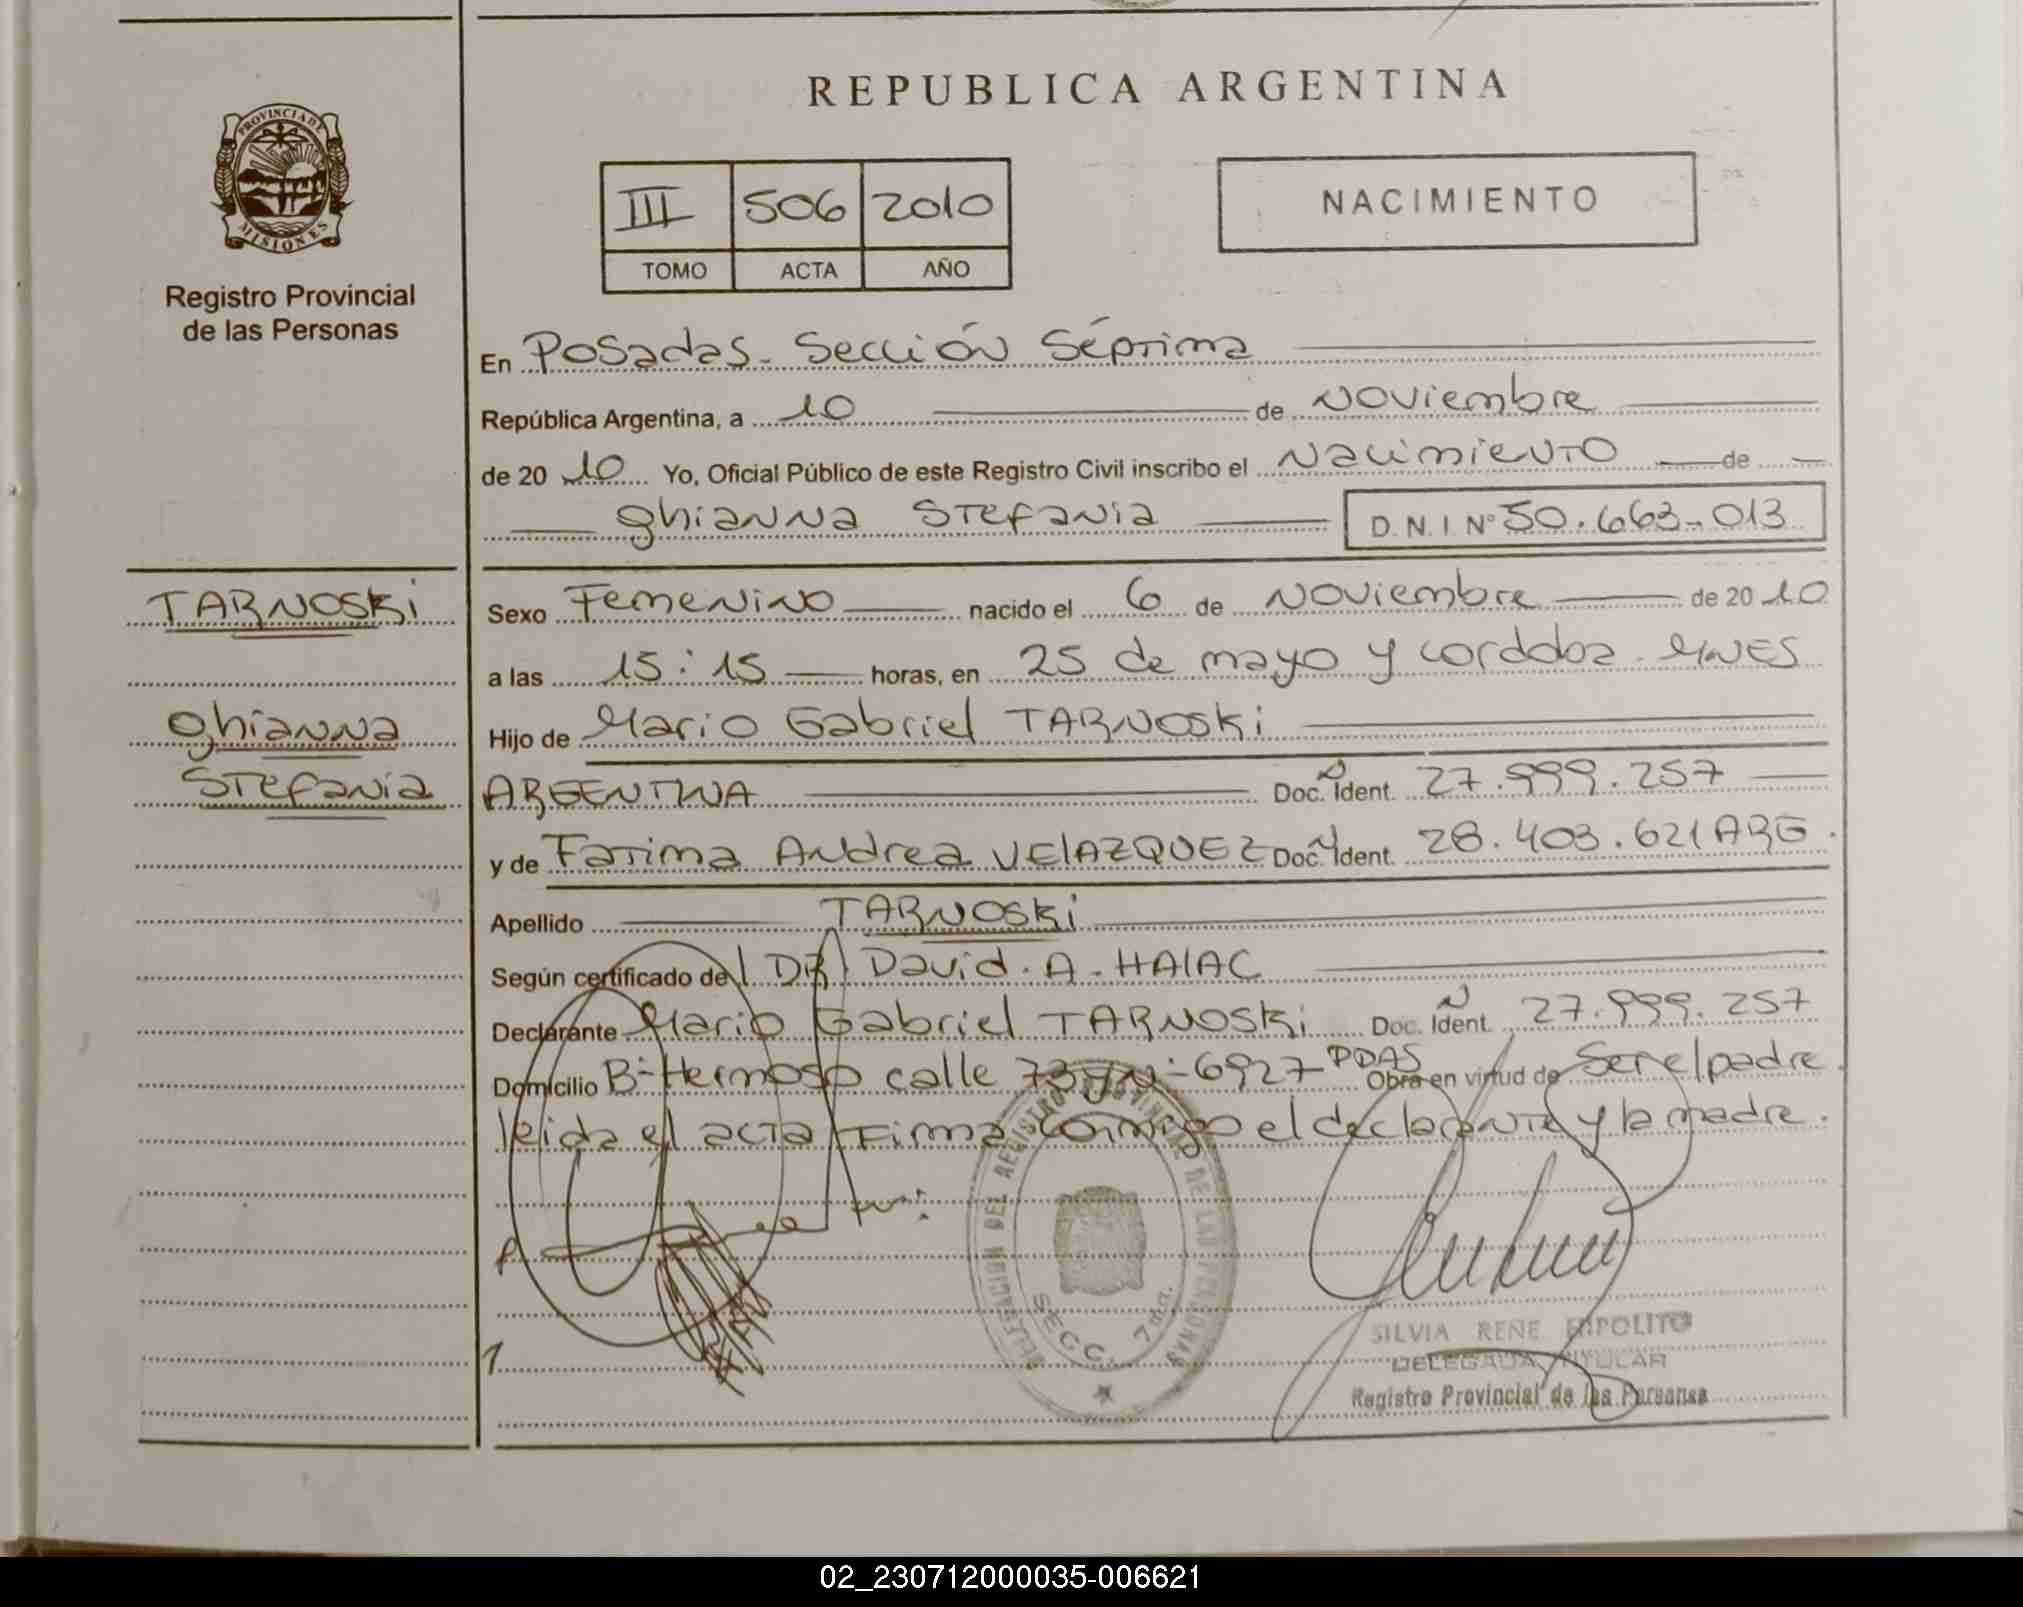 REPUBLICA ARGENTINA
PROVINCIA DE
MISIONES
Registro Provincial
de las Personas
III 506 2010
TOMO ACTA AÑO
NACIMIENTO
En Posadas - Sección Séptima
República Argentina, a 10 de Noviembre
de 20 10 Yo, Oficial Público de este Registro Civil inscribo el Nacimiento de
Ghianna Stefania D.N.I. Nº 50.663.013
TARNOSKi
Ghianna
Stefania
Sexo Femenino nacido el 6 de Noviembre de 20 10
a las 15:15 horas, en 25 de mayo y cordoba. MNES
Hijo de Mario Gabriel TARNOSKi
ARGENTINA Doc. Ident. 27.999.257
y de Fatima Andrea VELAZQUEZ Doc. Ident. 28.403.621 ARG.
Apellido TARNOSKi
Según certificado de DR David. A. HALAC
Declarante Mario Gabriel TARNOSKi Doc. Ident. 27.999.257
Domicilio Bº Hermoso calle Nº 6927 PDAS Obra en virtud de Ser el padre
leida el acta Firma conmigo el declarante y la madre.
DELEGACION DEL REGISTRO PROVINCIAL DE LAS PERSONAS
SECC. 7ma.
SILVIA RENE HIPOLITO
DELEGADA TITULAR
Registro Provincial de las Personas
02_230712000035-006621